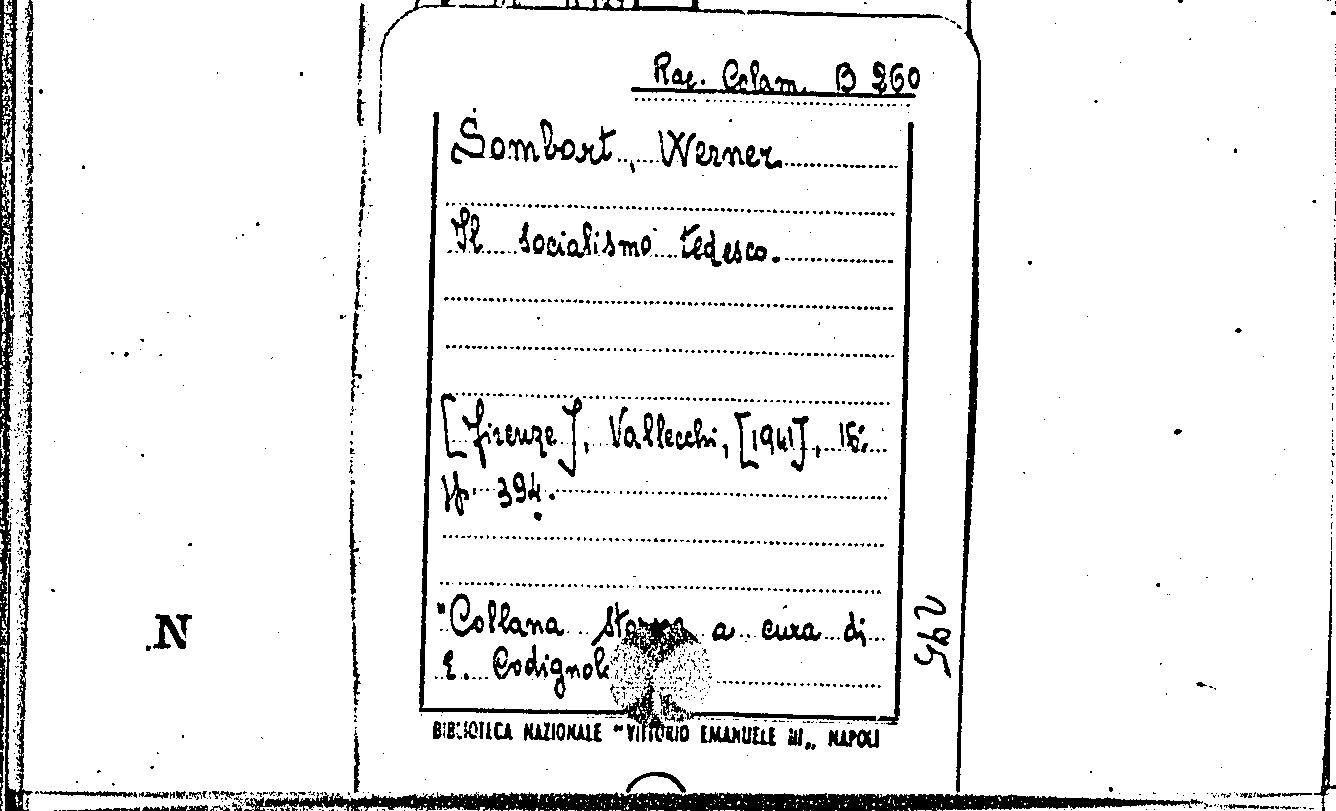 Rac. Colam. B 260
Sombart, Werner
Il socialismo tedesco.
[Firenze], Vallecchi, [1941], 16;
pp. 394.
"Collana storica a cura di
E. Codignola
BIBLIOTECA NAZIONALE "VITTORIO EMANUELE III„ NAPOLI
295
N